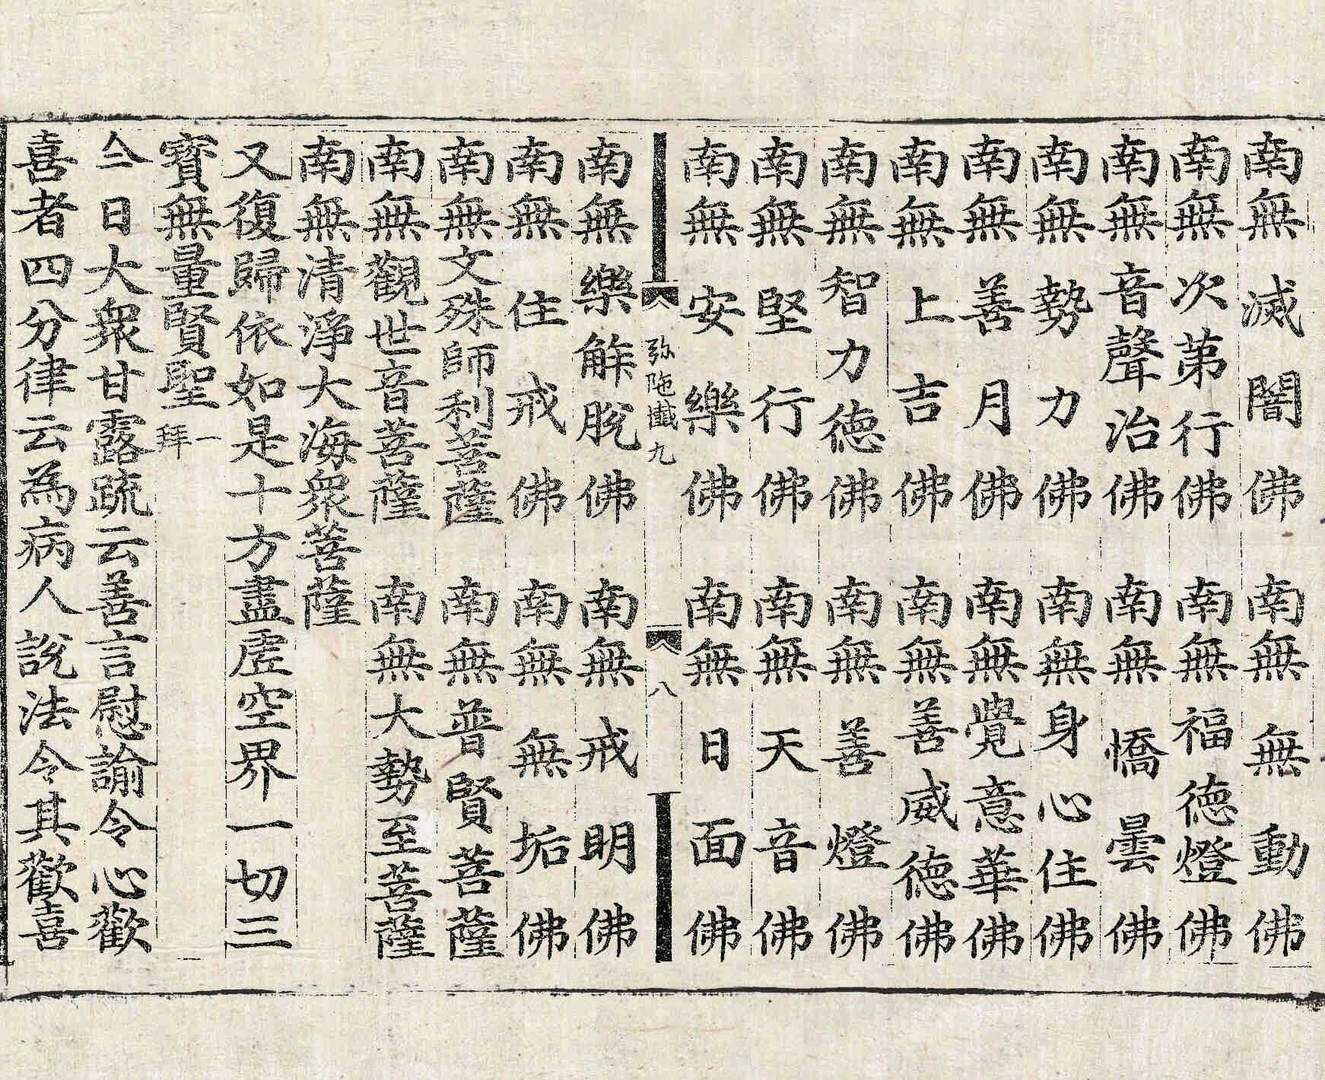 南無滅闇佛　南無無動佛
南無次第行佛　南無福德燈佛
南無音聲治佛　南無憍曇佛
南無勢力佛　南無身心住佛
南無善月佛　南無覺意華佛
南無上吉佛　南無善威德佛
南無智力德佛　南無善燈佛
南無堅行佛　南無天音佛
南無安樂佛　南無日面佛
弥陁懴九　八
南無樂解脫佛　南無戒明佛
南無住戒佛　南無無垢佛
南無文殊師利菩薩　南無普賢菩薩
南無觀世音菩薩　南無大勢至菩薩
南無清淨大海衆菩薩
又復歸依如是十方盡虛空界一切三
寶無量賢聖一拜
今日大衆甘露疏云善言慰諭令心歡
喜者四分律云為病人說法令其歡喜